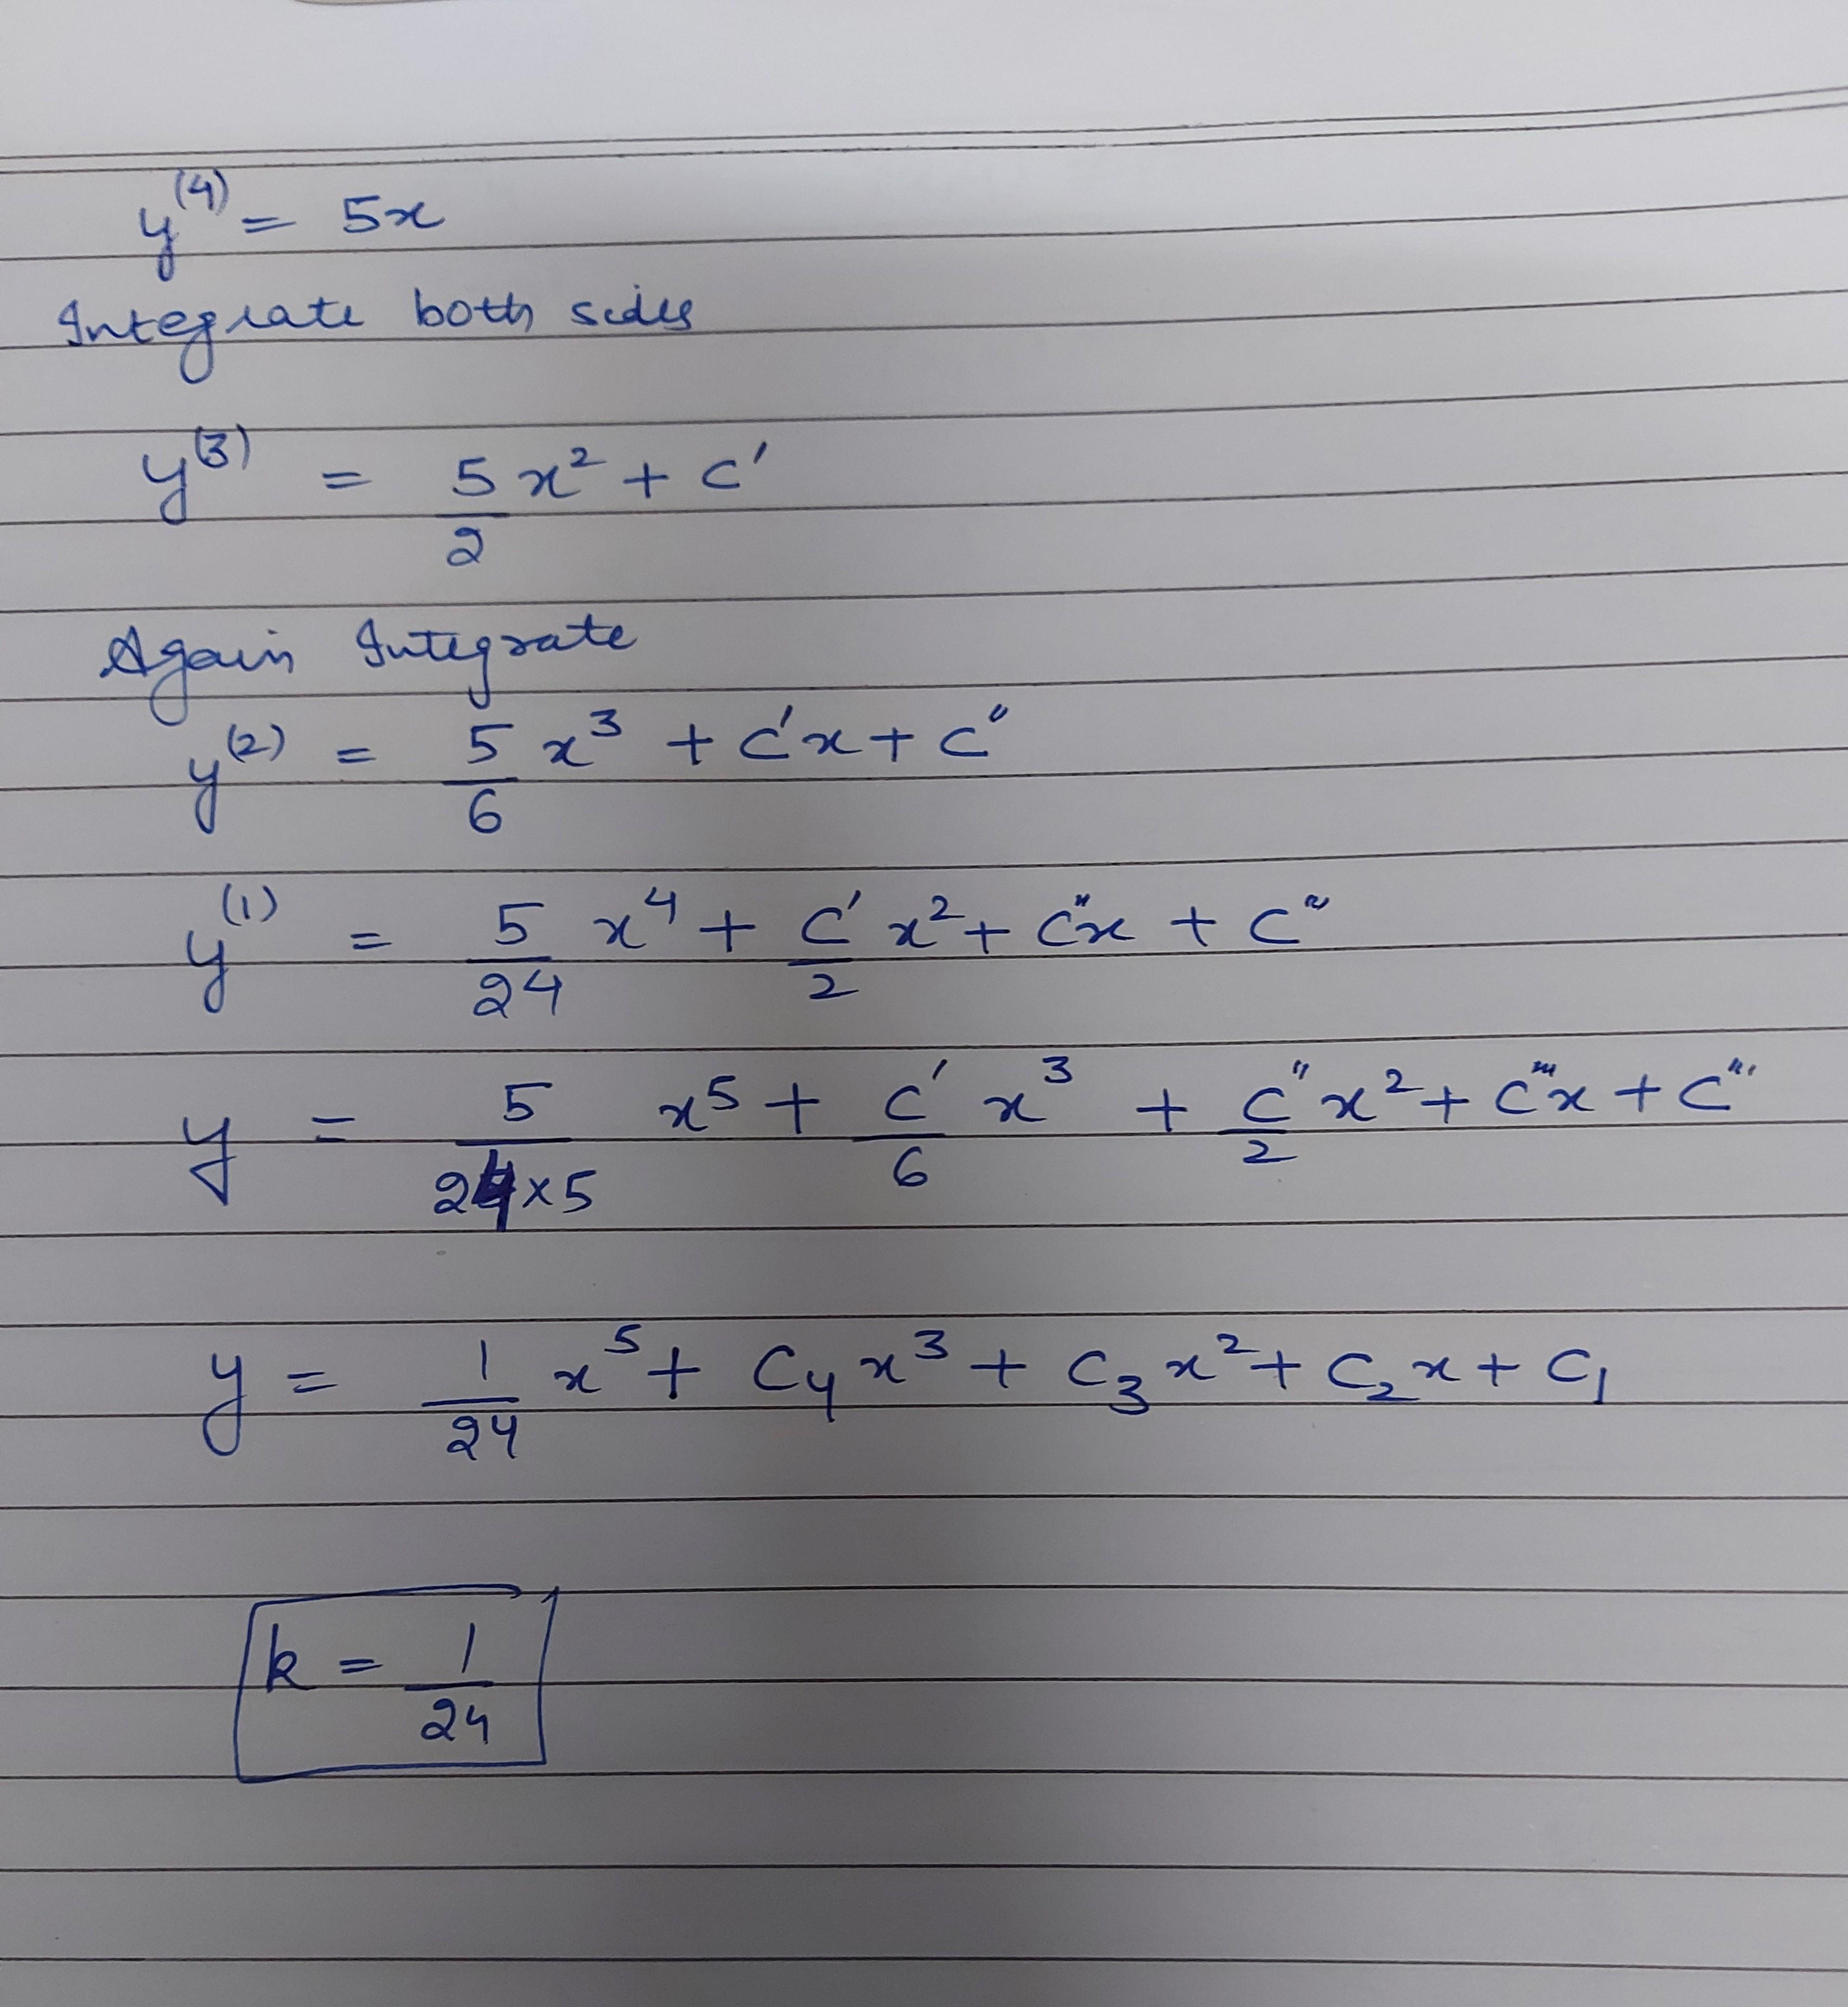 y⁽⁴⁾ = 5x
Integrate both sides
y⁽³⁾ = 5/2 x² + c'
Again Integrate
y⁽²⁾ = 5/6 x³ + c'x + c"
y⁽¹⁾ = 5/24 x⁴ + c'/2 x² + c"x + c'''
y = 5/24×5 x⁵ + c'/6 x³ + c"/2 x² + c'''x + c''''
y = 1/24 x⁵ + C₄x³ + C₃x² + C₂x + C₁
k = 1/24